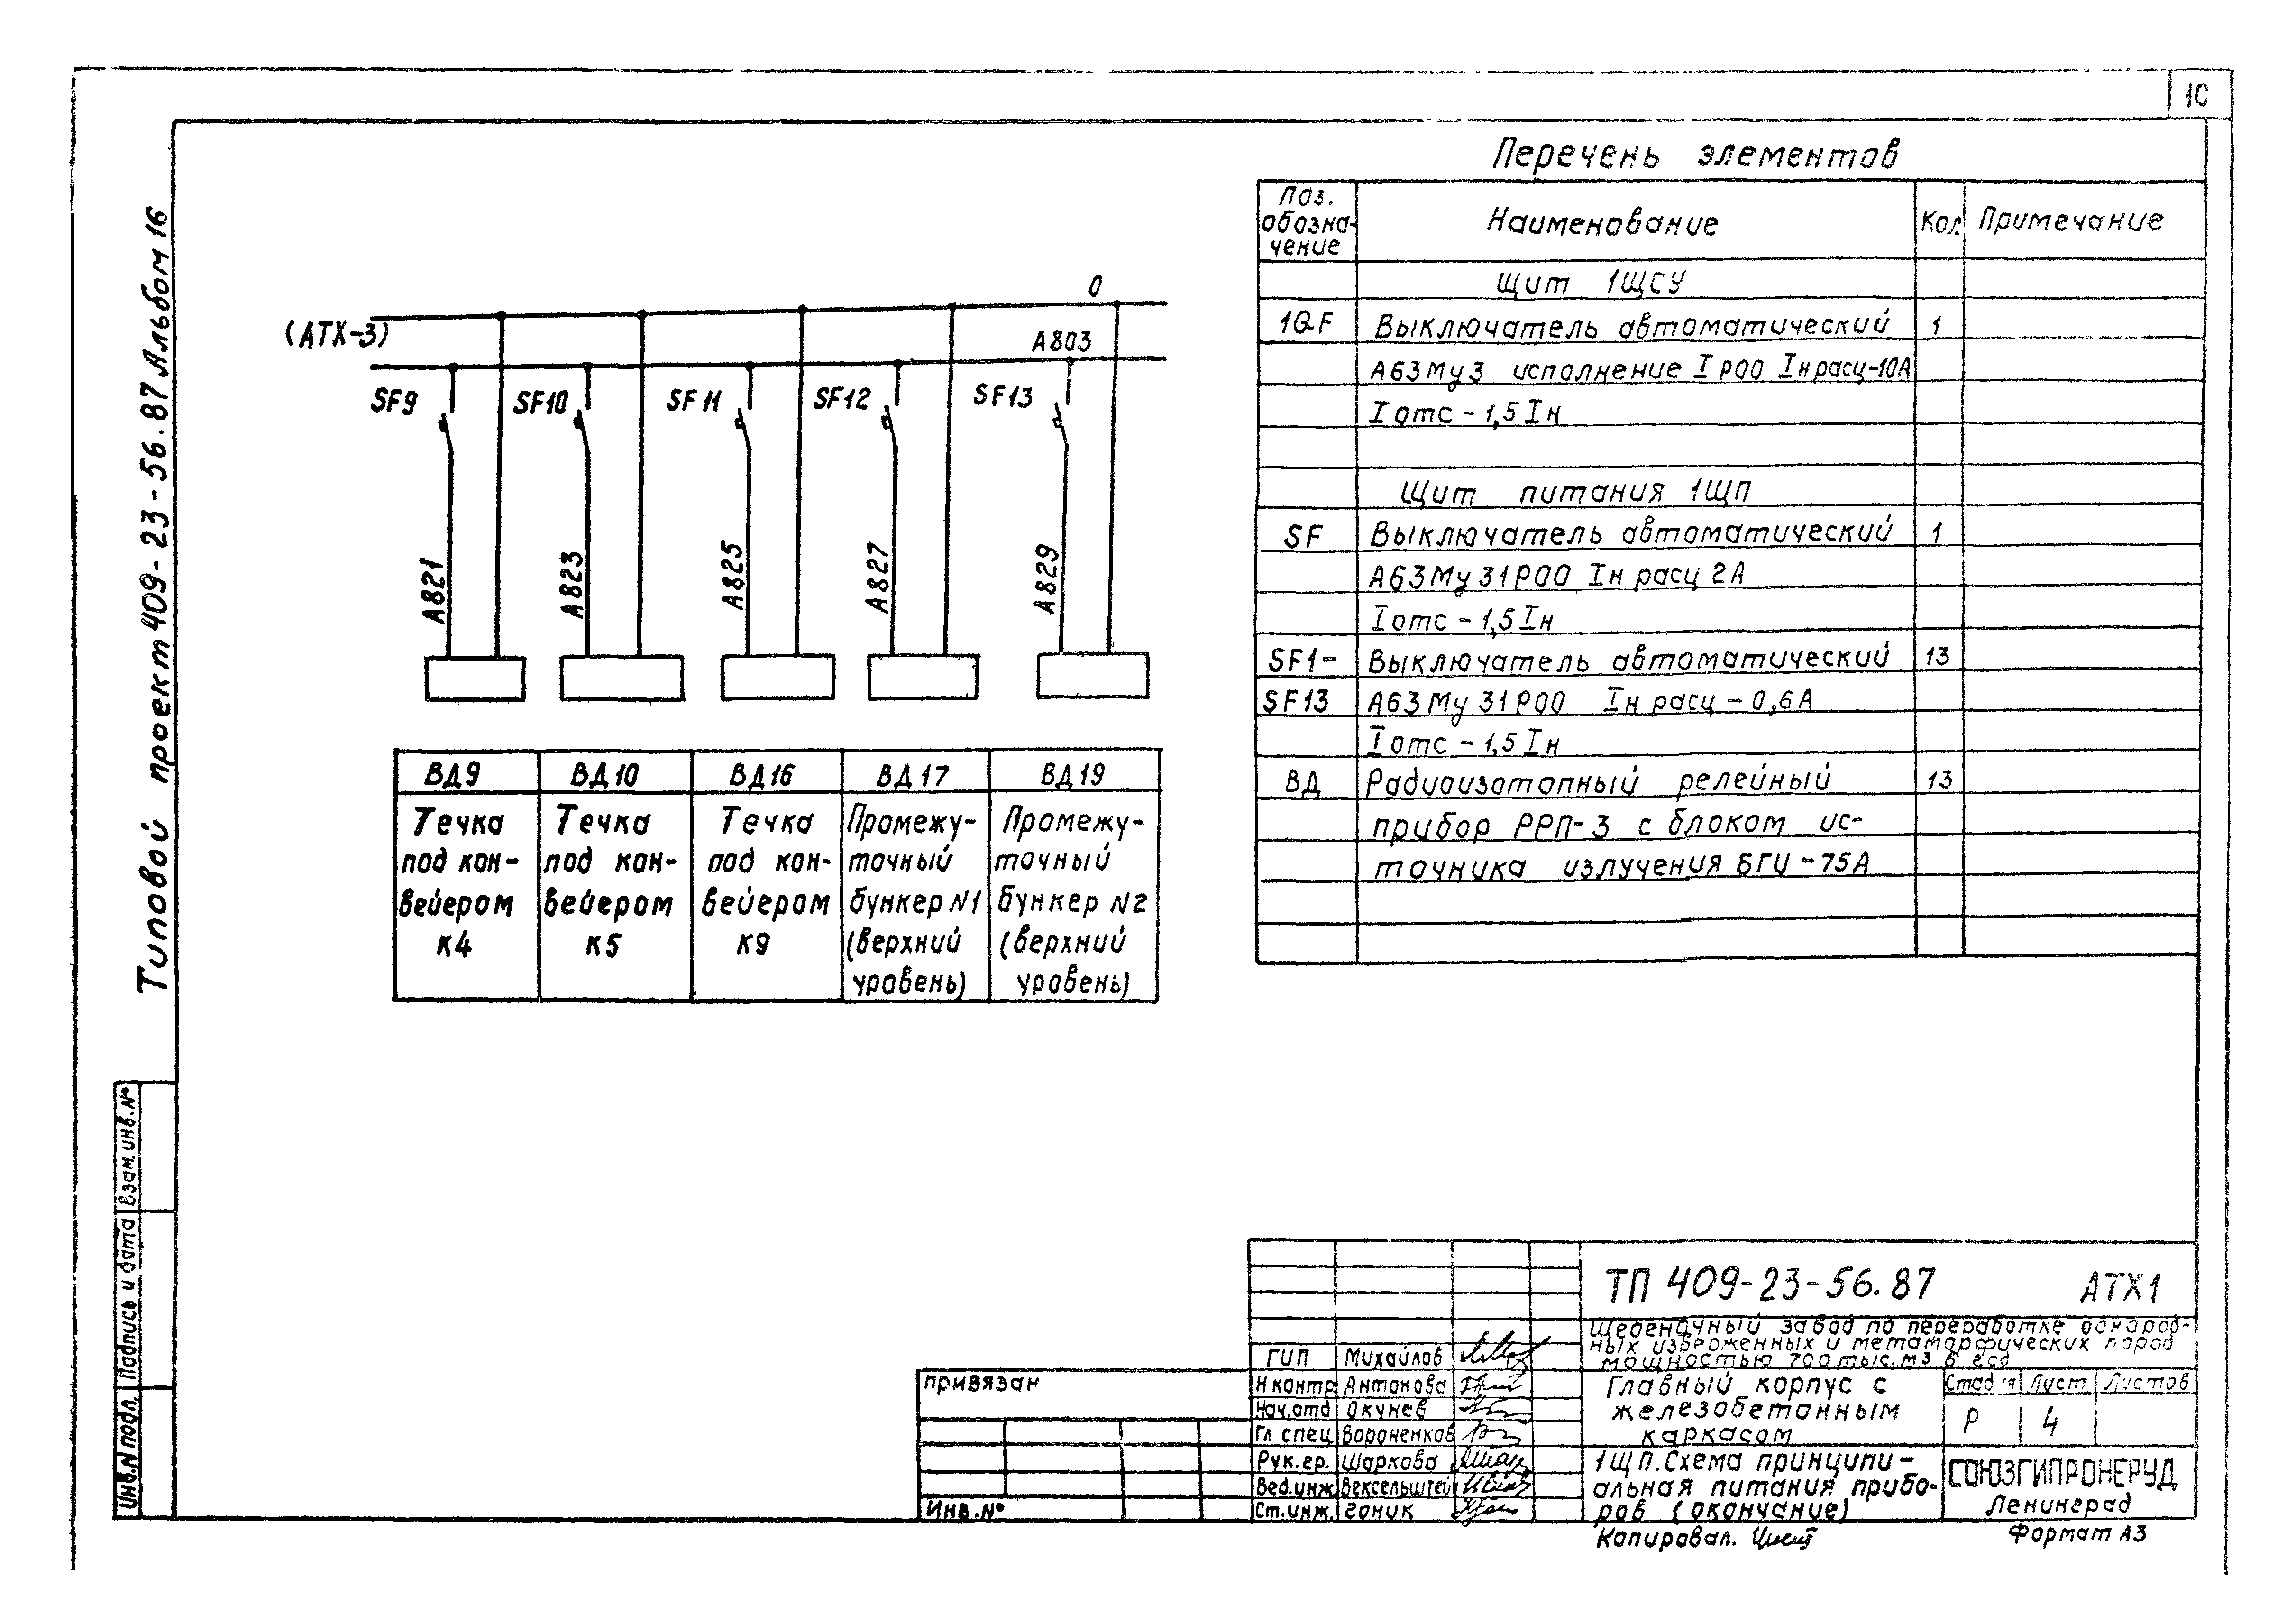 1С
Типовой проект 409-23-56.87 Альбом 16
(АТХ-3)
0
А803
SF9
SF10
SF11
SF12
SF13
А821
А823
А825
А827
А829
ВД9 ВД10 ВД16 ВД17 ВД19
Течка Течка Течка Промежу- Промежу-
под кон- под кон- под кон- точный точный
вейером вейером вейером бункер N1 бункер N2
к4 к5 к9 (верхний (верхний
уровень) уровень)
Перечень элементов
Поз.
обозна-
чение
Наименование Кол Примечание
Щит 1ЩСУ
1QF Выключатель автоматический 1
А63Му3 исполнение I Р00 Iн расц-10А
Iотс - 1,5 Iн
Щит питания 1ЩП
SF Выключатель автоматический 1
А63Му31Р00 Iн расц 2А
Iотс - 1,5 Iн
SF1- Выключатель автоматический 13
SF13 А63Му31Р00 Iн расц - 0,6А
Iотс - 1,5 Iн
ВД Радиоизотопный релейный 13
прибор РРП-3 с блоком ис-
точника излучения БГИ-75А
Взам. инв. №
Подпись и дата
Инв. N подл.
привязан
Инв. №
ГИП Михайлов
Н контр Антонова
Нач. отд Окунев
Гл спец Вороненков
Рук. гр. Шаркова
Вед. инж Вексельштей
Ст. инж. Гоник
ТП 409-23-56.87 АТХ1
Щебеночный завод по переработке однород-
ных изверженных и метаморфических пород
мощностью 700 тыс. м3 в год
Главный корпус с
железобетонным
каркасом
Стадия Лист Листов
Р 4
1ЩП. Схема принципи-
альная питания прибо-
ров (окончание)
СОЮЗГИПРОНЕРУД
Ленинград
Копировал.
Формат А3